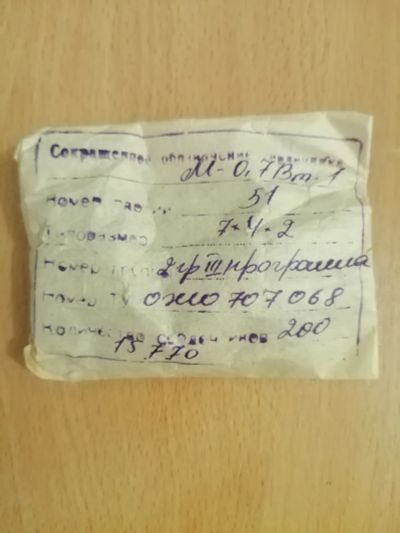 Сокращенное обозначение сердечника
М-0,7Вт-1
Номер партии 51
Типоразмер 7×4×2
Номер группы 2гр III программа
Номер ТУ ОЖО 707 068
Количество сердечников 200
15 770